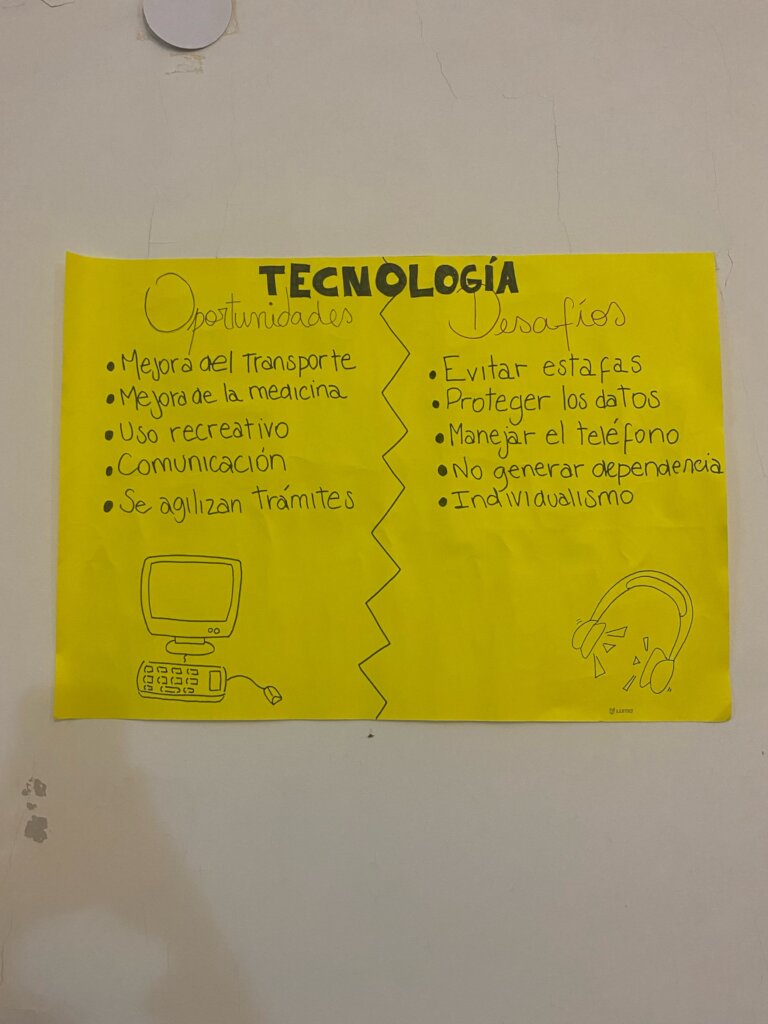 TECNOLOGÍA
Oportunidades
• Mejora del Transporte
• Mejora de la medicina
• Uso recreativo
• Comunicación
• Se agilizan trámites
Desafíos
• Evitar estafas
• Proteger los datos
• Manejar el teléfono
• No generar dependencia
• Individualismo